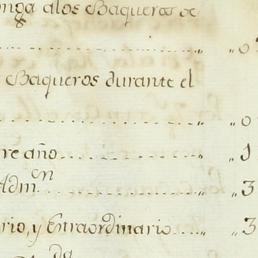 onga alos Baqueros de
.............. „ „ 0
Baqueros durante el
.............. „ „ 0
re año.............. „ „ 1
Adm.en .............. „ „ 3
rio, y Extraordinario.... „ „ 3